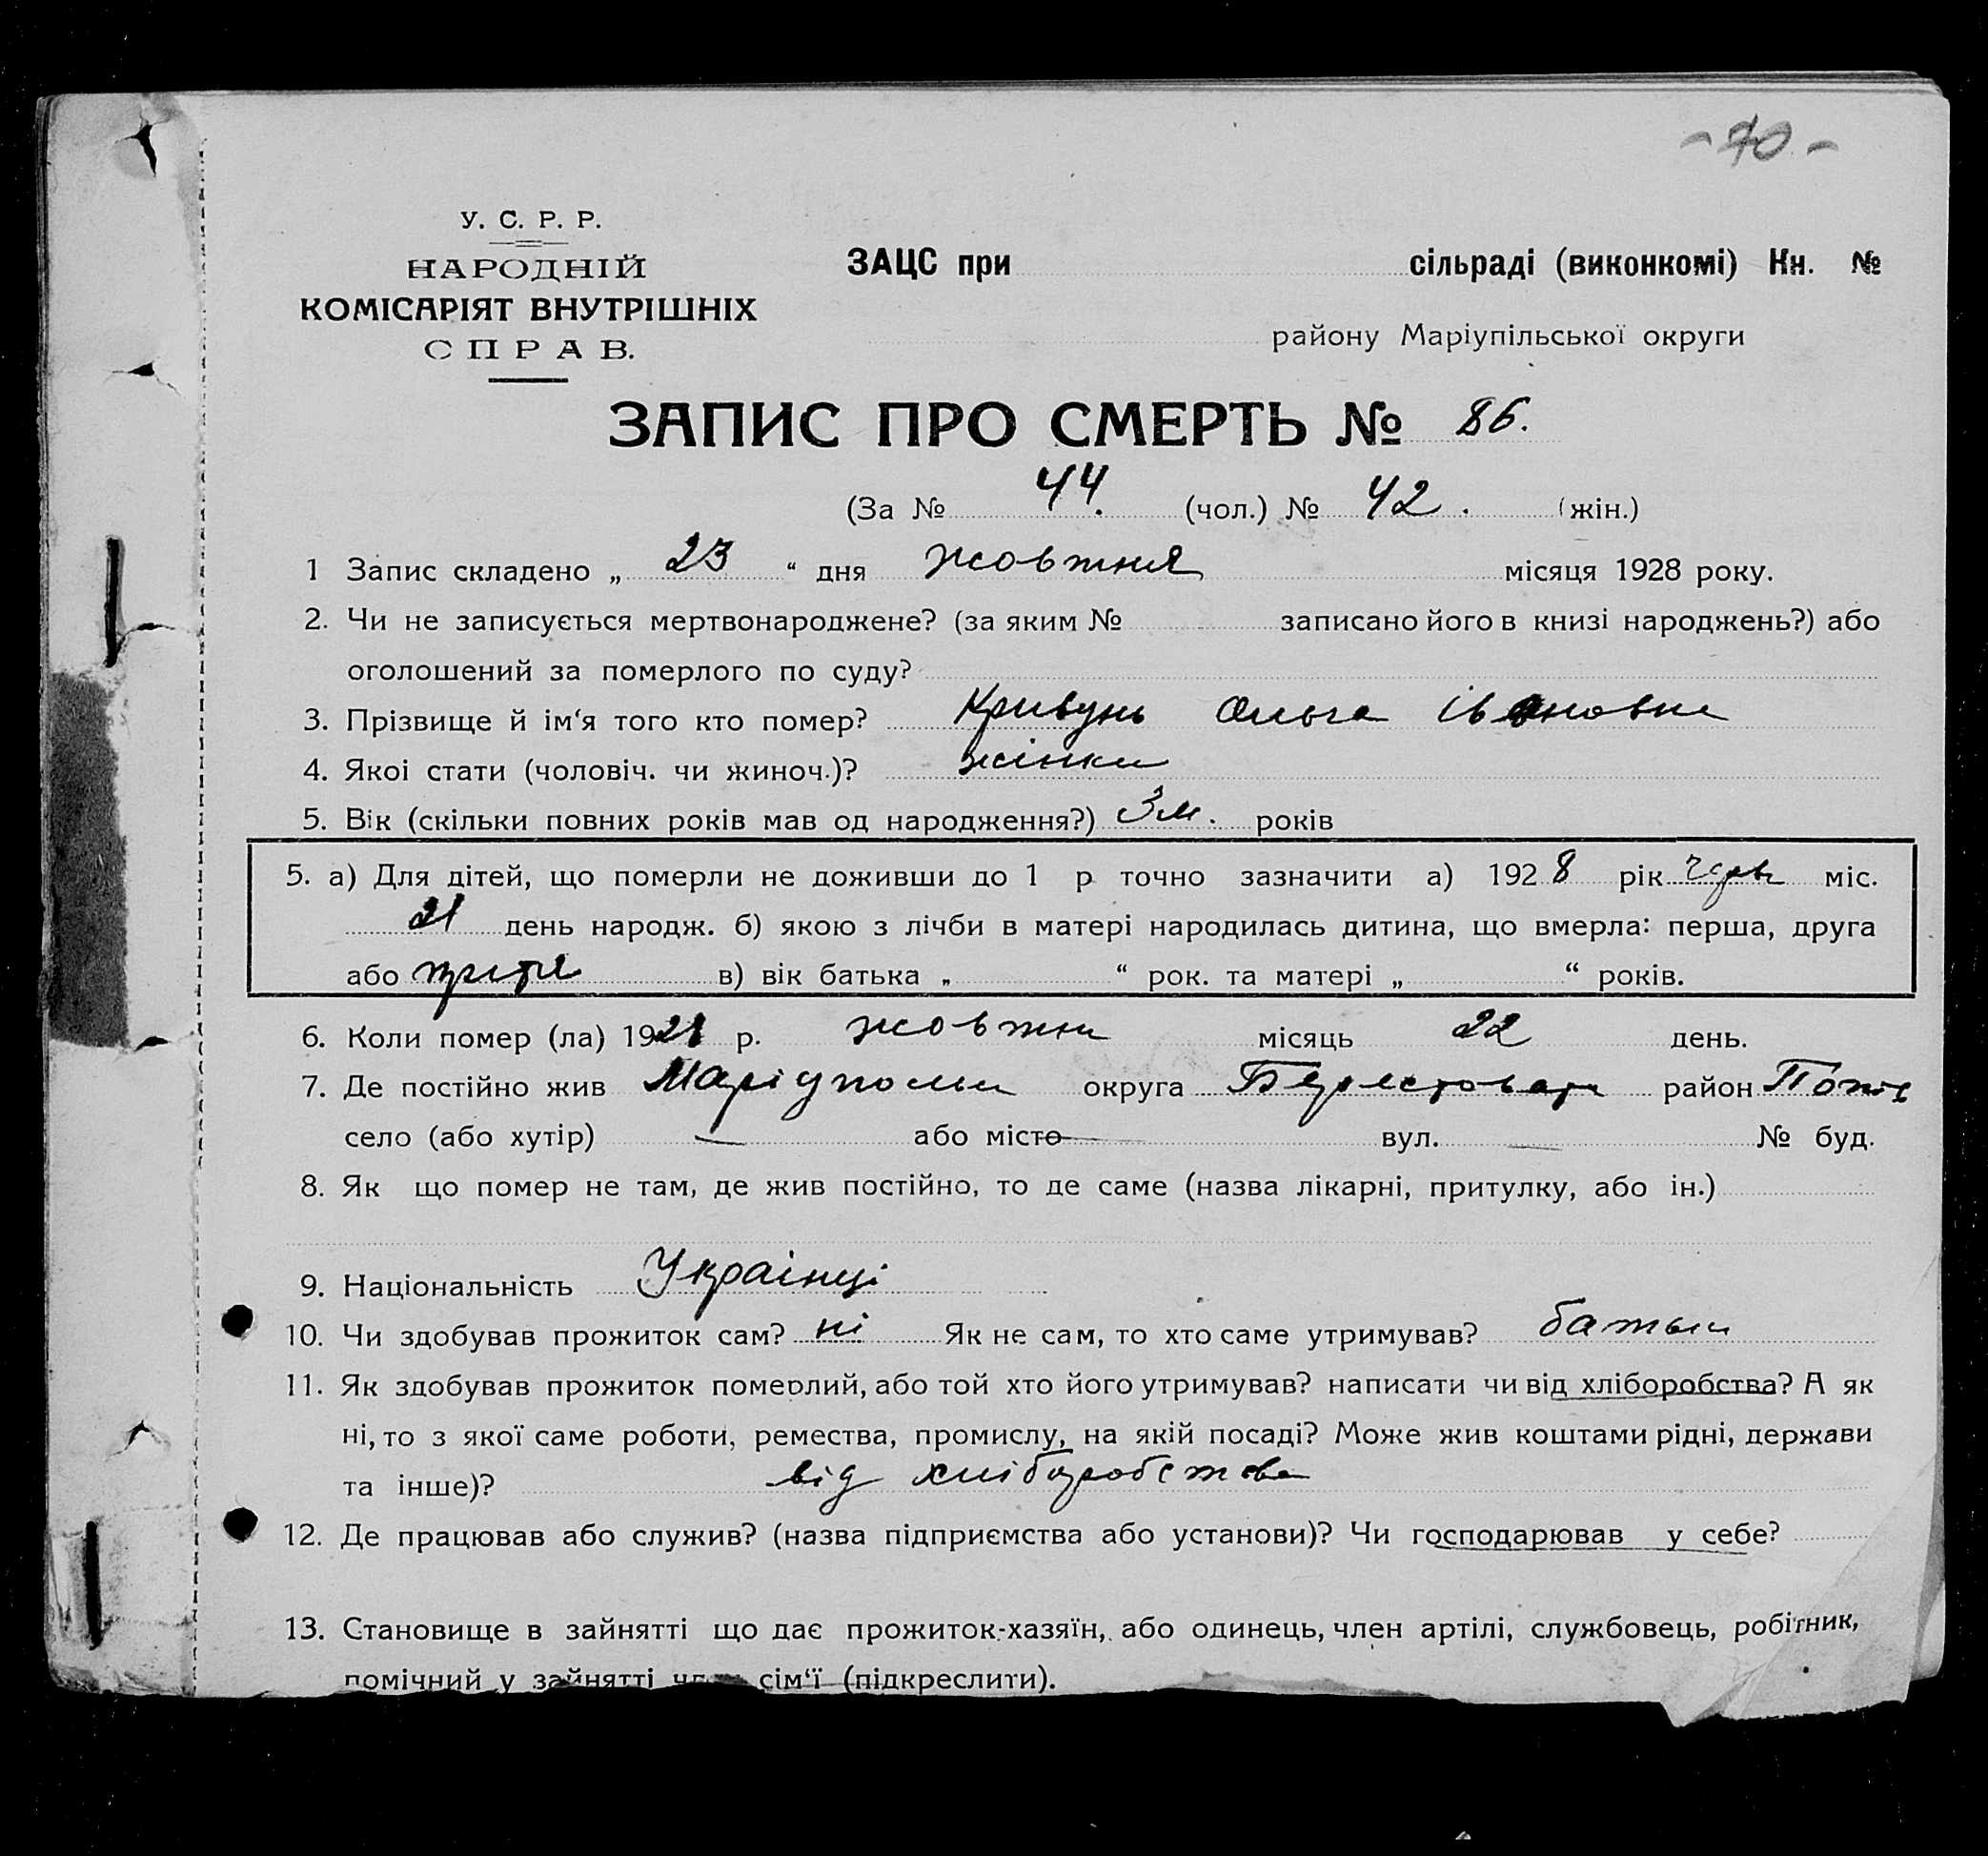 - 70 -
У. С. Р. Р.
НАРОДНІЙ
КОМІСАРІЯТ ВНУТРІШНІХ
СПРАВ.
ЗАЦС при сільраді (виконкомі) Кн. №
району Маріупільської округи
ЗАПИС ПРО СМЕРТЬ № 86.
(За № 44. (чол.) № 42. (жін.)
1 Запис складено „ 23 “ дня жовтня місяця 1928 року.
2. Чи не записується мертвонароджене? (за яким № записано його в книзі народжень?) або
оголошений за померлого по суду?
3. Прізвище й ім‘я того кто помер? Кривунь Ольга Івановна
4. Якоі стати (чоловіч. чи жиноч.)? жінки
5. Вік (скільки повних років мав од народження?) 3 м. років
5. а) Для дітей, що померли не доживши до 1 р точно зазначити а) 1928 рік черв міс.
21 день народж. б) якою з лічби в матері народилась дитина, що вмерла: перша, друга
або третя в) вік батька „ “ рок. та матері „ “ років.
6. Коли помер (ла) 1928 р. жовтня місяць 22 день.
7. Де постійно жив Маріупольска округа район
село (або хутір) — або місто — вул. — № буд.
8. Як що помер не там, де жив постійно, то де саме (назва лікарні, притулку, або ін.)
9. Національність Українці
10. Чи здобував прожиток сам? ні Як не сам, то хто саме утримував? батьки
11. Як здобував прожиток померлий, або той хто його утримував? написати чи від хліборобства? А як
ні, то з якої саме роботи, ремества, промислу, на якій посаді? Може жив коштами рідні, держави
та інше)? від хліборобства
12. Де працював або служив? (назва підприємства або установи)? Чи господарював у себе?
13. Становище в зайнятті що дає прожиток-хазяїн, або одинець, член артілі, службовець, робітник,
помічний у зайнятті член сім‘ї (підкреслити).